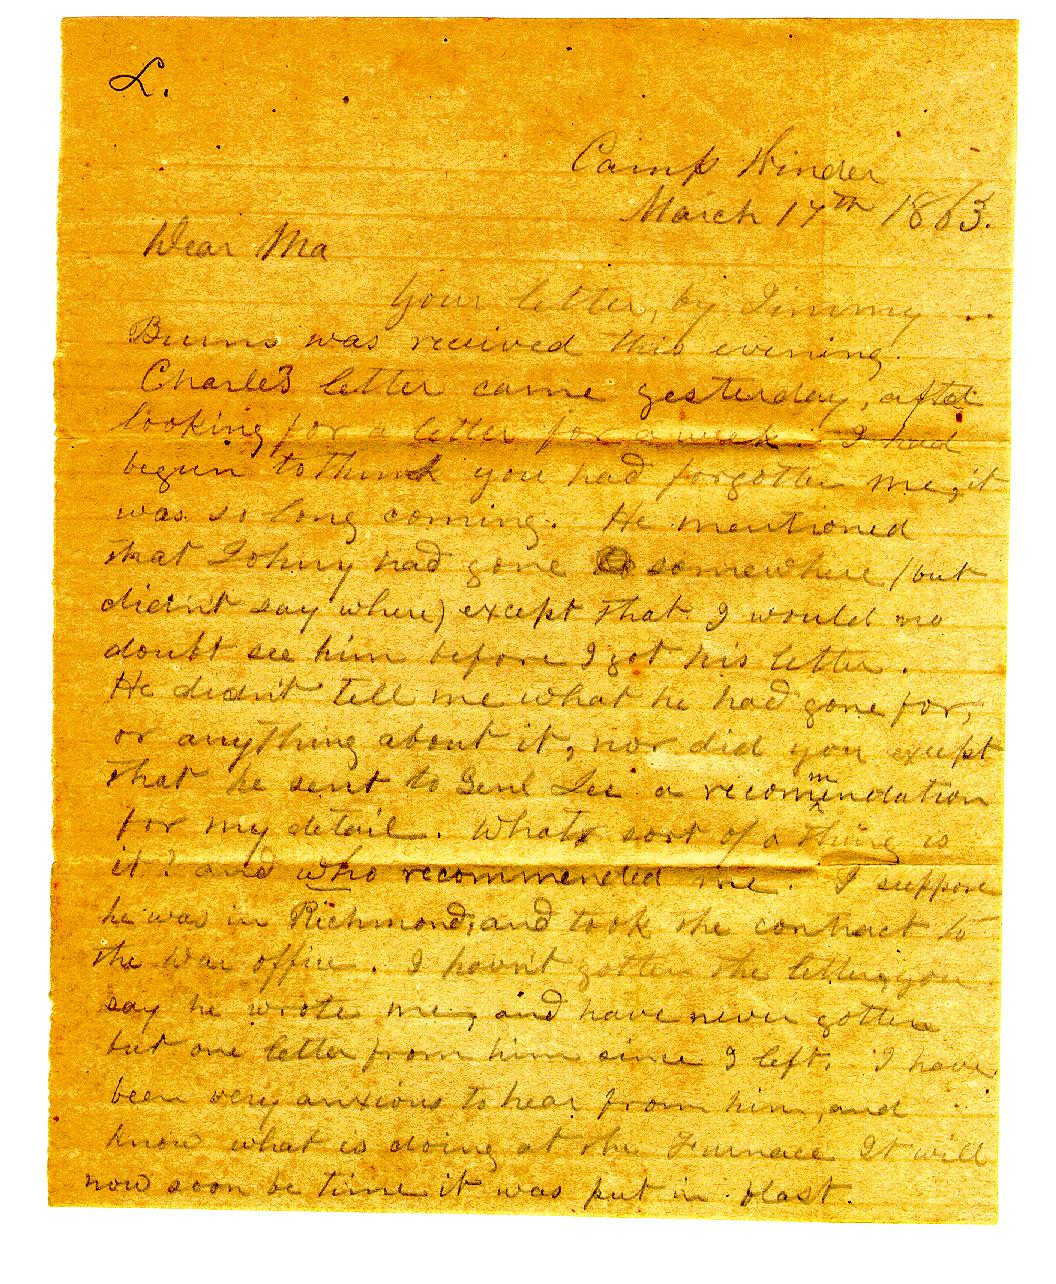 L.
Camp Winder
March 17th 1863.
Dear Ma
Your letter, by Jimmy
Burns was received this evening.
Charles letter came yesterday, after
looking for a letter for a week. I had
begun to think you had forgotten me, it
was so long coming. He mentioned
that Johny had gone somewhere (but
didn't say where) except that I would no
doubt see him before I got his letter.
He didn't tell me what he had gone for,
or anything about it, nor did you except
that he sent to Genl Lee a recommendation
for my detail. What sort of a thing is
it? and who recommended me. I suppose
he was in Richmond, and took the contract to
the War office. I havn't gotten the letter, you
say he wrote me, and have never gotten
but one letter from him since I left. I have
been very anxious to hear from him, and
know what is doing at the Furnace It will
now soon be time it was put in blast.